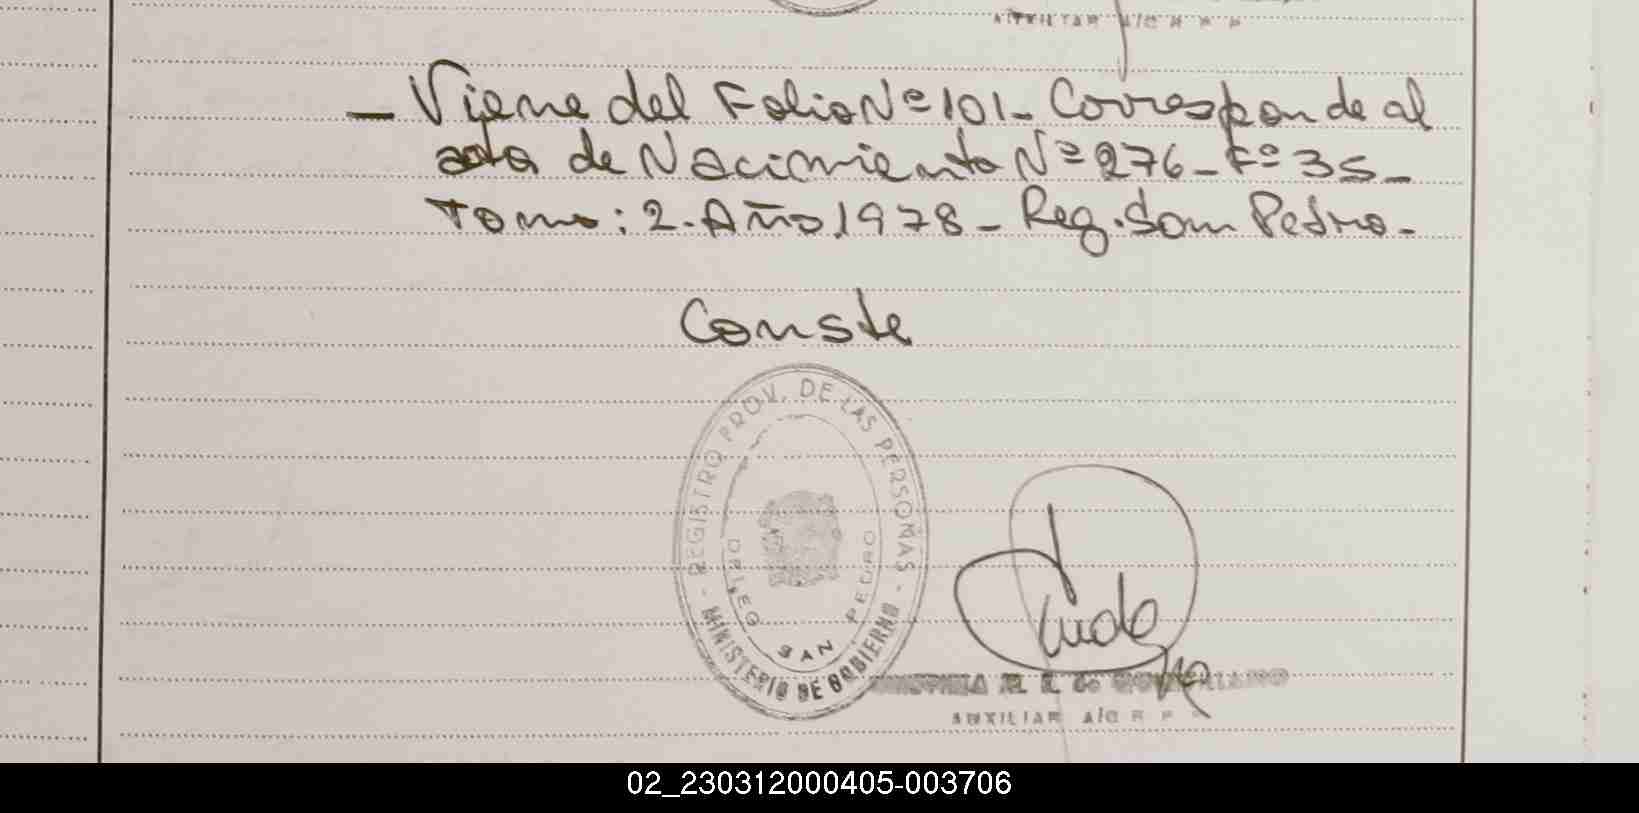 AUXILIAR A/C R P P
— Viene del Folio Nº 101 - Corresponde al
acta de Nacimiento Nº 276 - Fº 35 -
Tomo: 2. Año 1978 - Reg. San Pedro. -
Conste
REGISTRO PROV. DE LAS PERSONAS
- MINISTERIO DE GOBIERNO -
SAN PEDRO
AUXILIAR A/C R P P
02_230312000405-003706